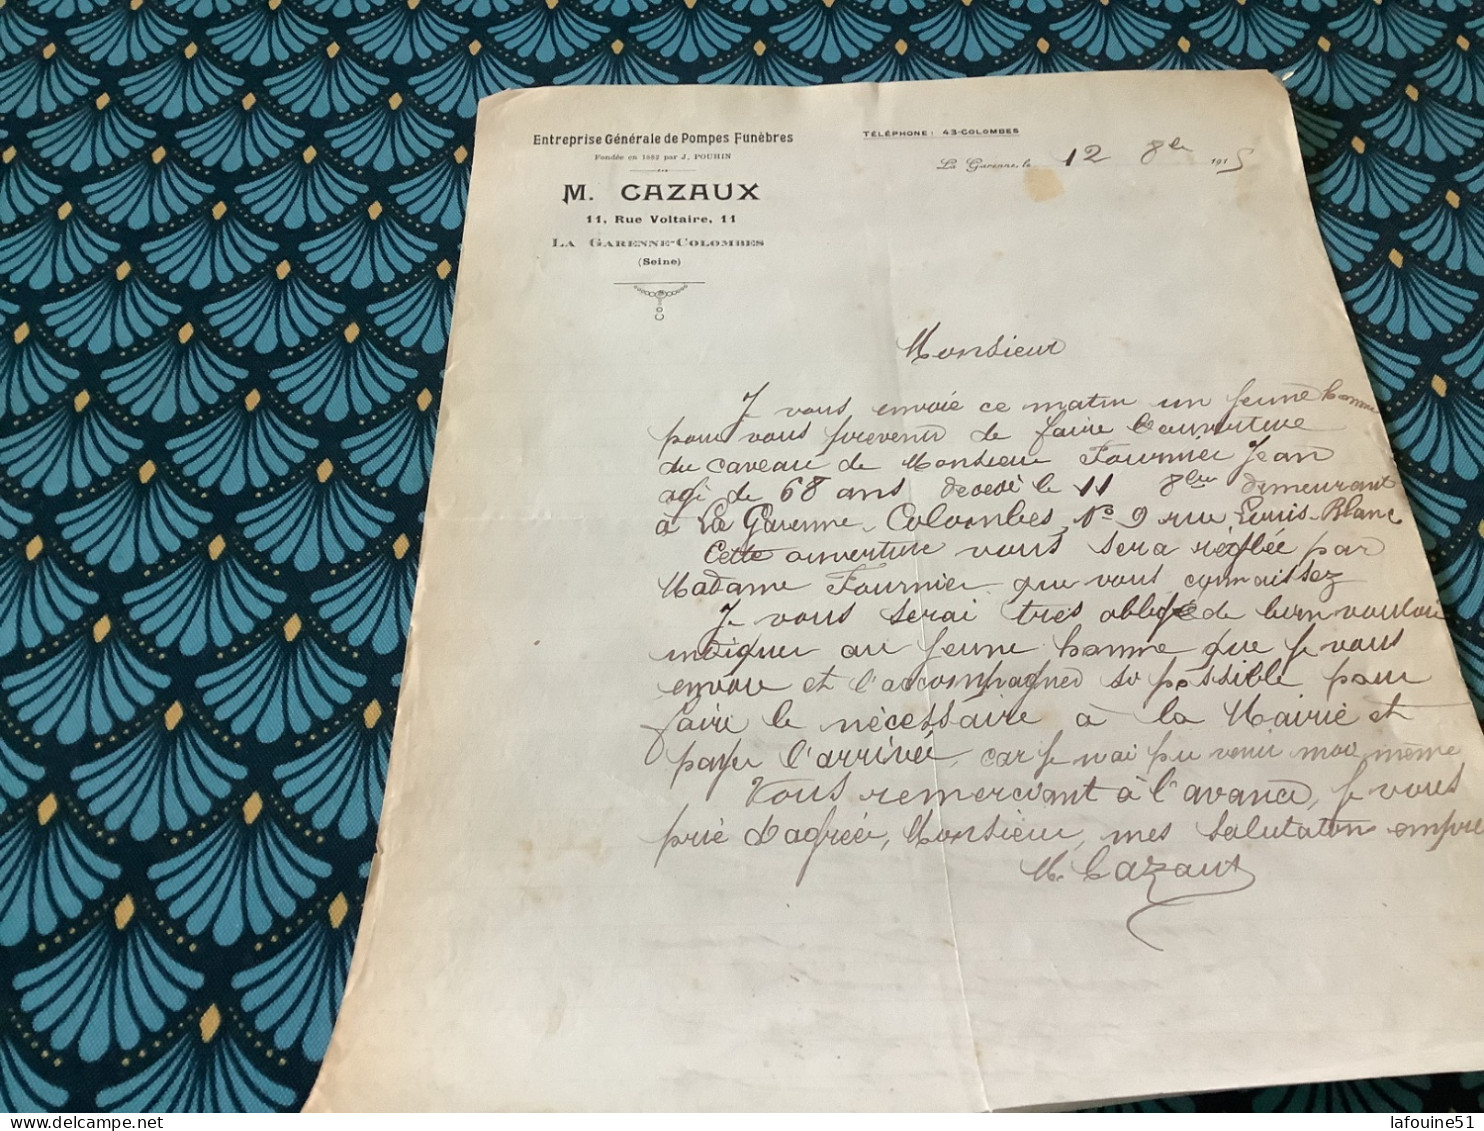 Entreprise Générale de Pompes Funèbres
Fondée en 1882 par J. POUHIN
M. CAZAUX
11, Rue Voltaire, 11
LA GARENNE-COLOMBES
(Seine)
TÉLÉPHONE: 43-COLOMBES
La Garenne, le 12 8bre 1915
Monsieur
Je vous envoie ce matin un jeune homme
pour vous prevenir de faire l'ouverture
du caveau de Monsieur Fournier Jean
agé de 68 ans decedé le 11 8bre demeurant
à La Garenne-Colombes, No 9 rue Louis-Blanc
Cette ouverture vous sera réglée par
Madame Fournier que vous connaissez
Je vous serai très obligé de bien vouloir
indiquer au jeune homme que je vous
envoie et l'accompagner si possible pour
faire le nécessaire à la Mairie et
payer l'arrivée, car je n'ai pu venir moi même
Vous remerciant à l'avance, je vous
prie d'agréer, Monsieur, mes salutation empre
M. Cazaux
lafouine51